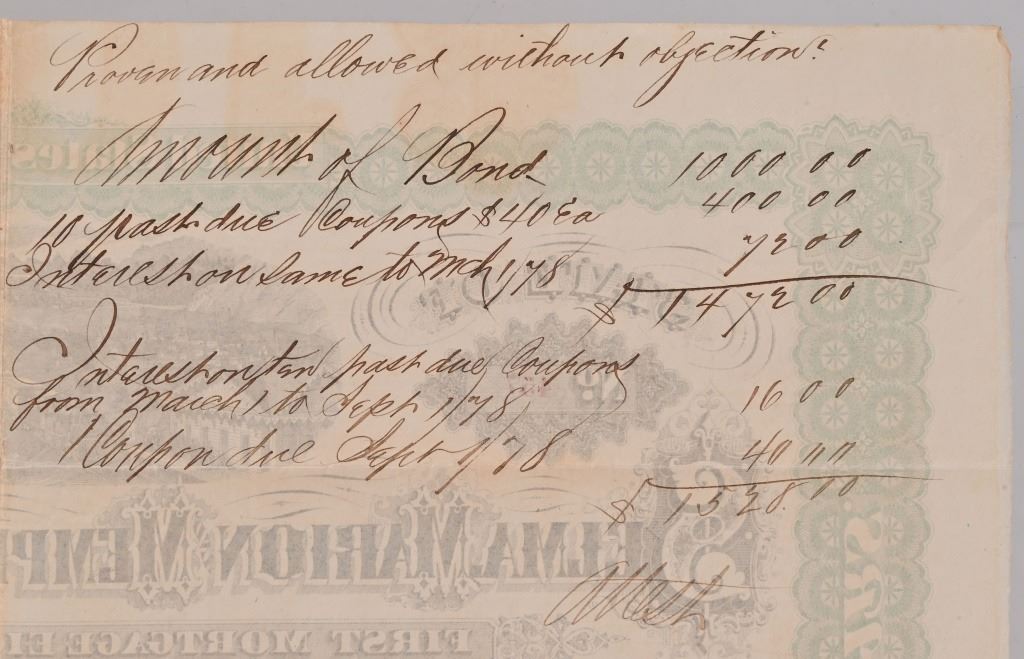 Proven and allowed without objection.
Amount of Bond 1000 00
10 past due Coupons $40 Ea 400 00
Interest on same to Mch 1/78 72 00
$ 1472 00
Interest on ten past due Coupons
from March 1 to Sept 1/78 16 00
1 Coupon due Sept 1/78 40 00
$ 1528.00
SELMA MARION MEMP
FIRST MORTGAGE